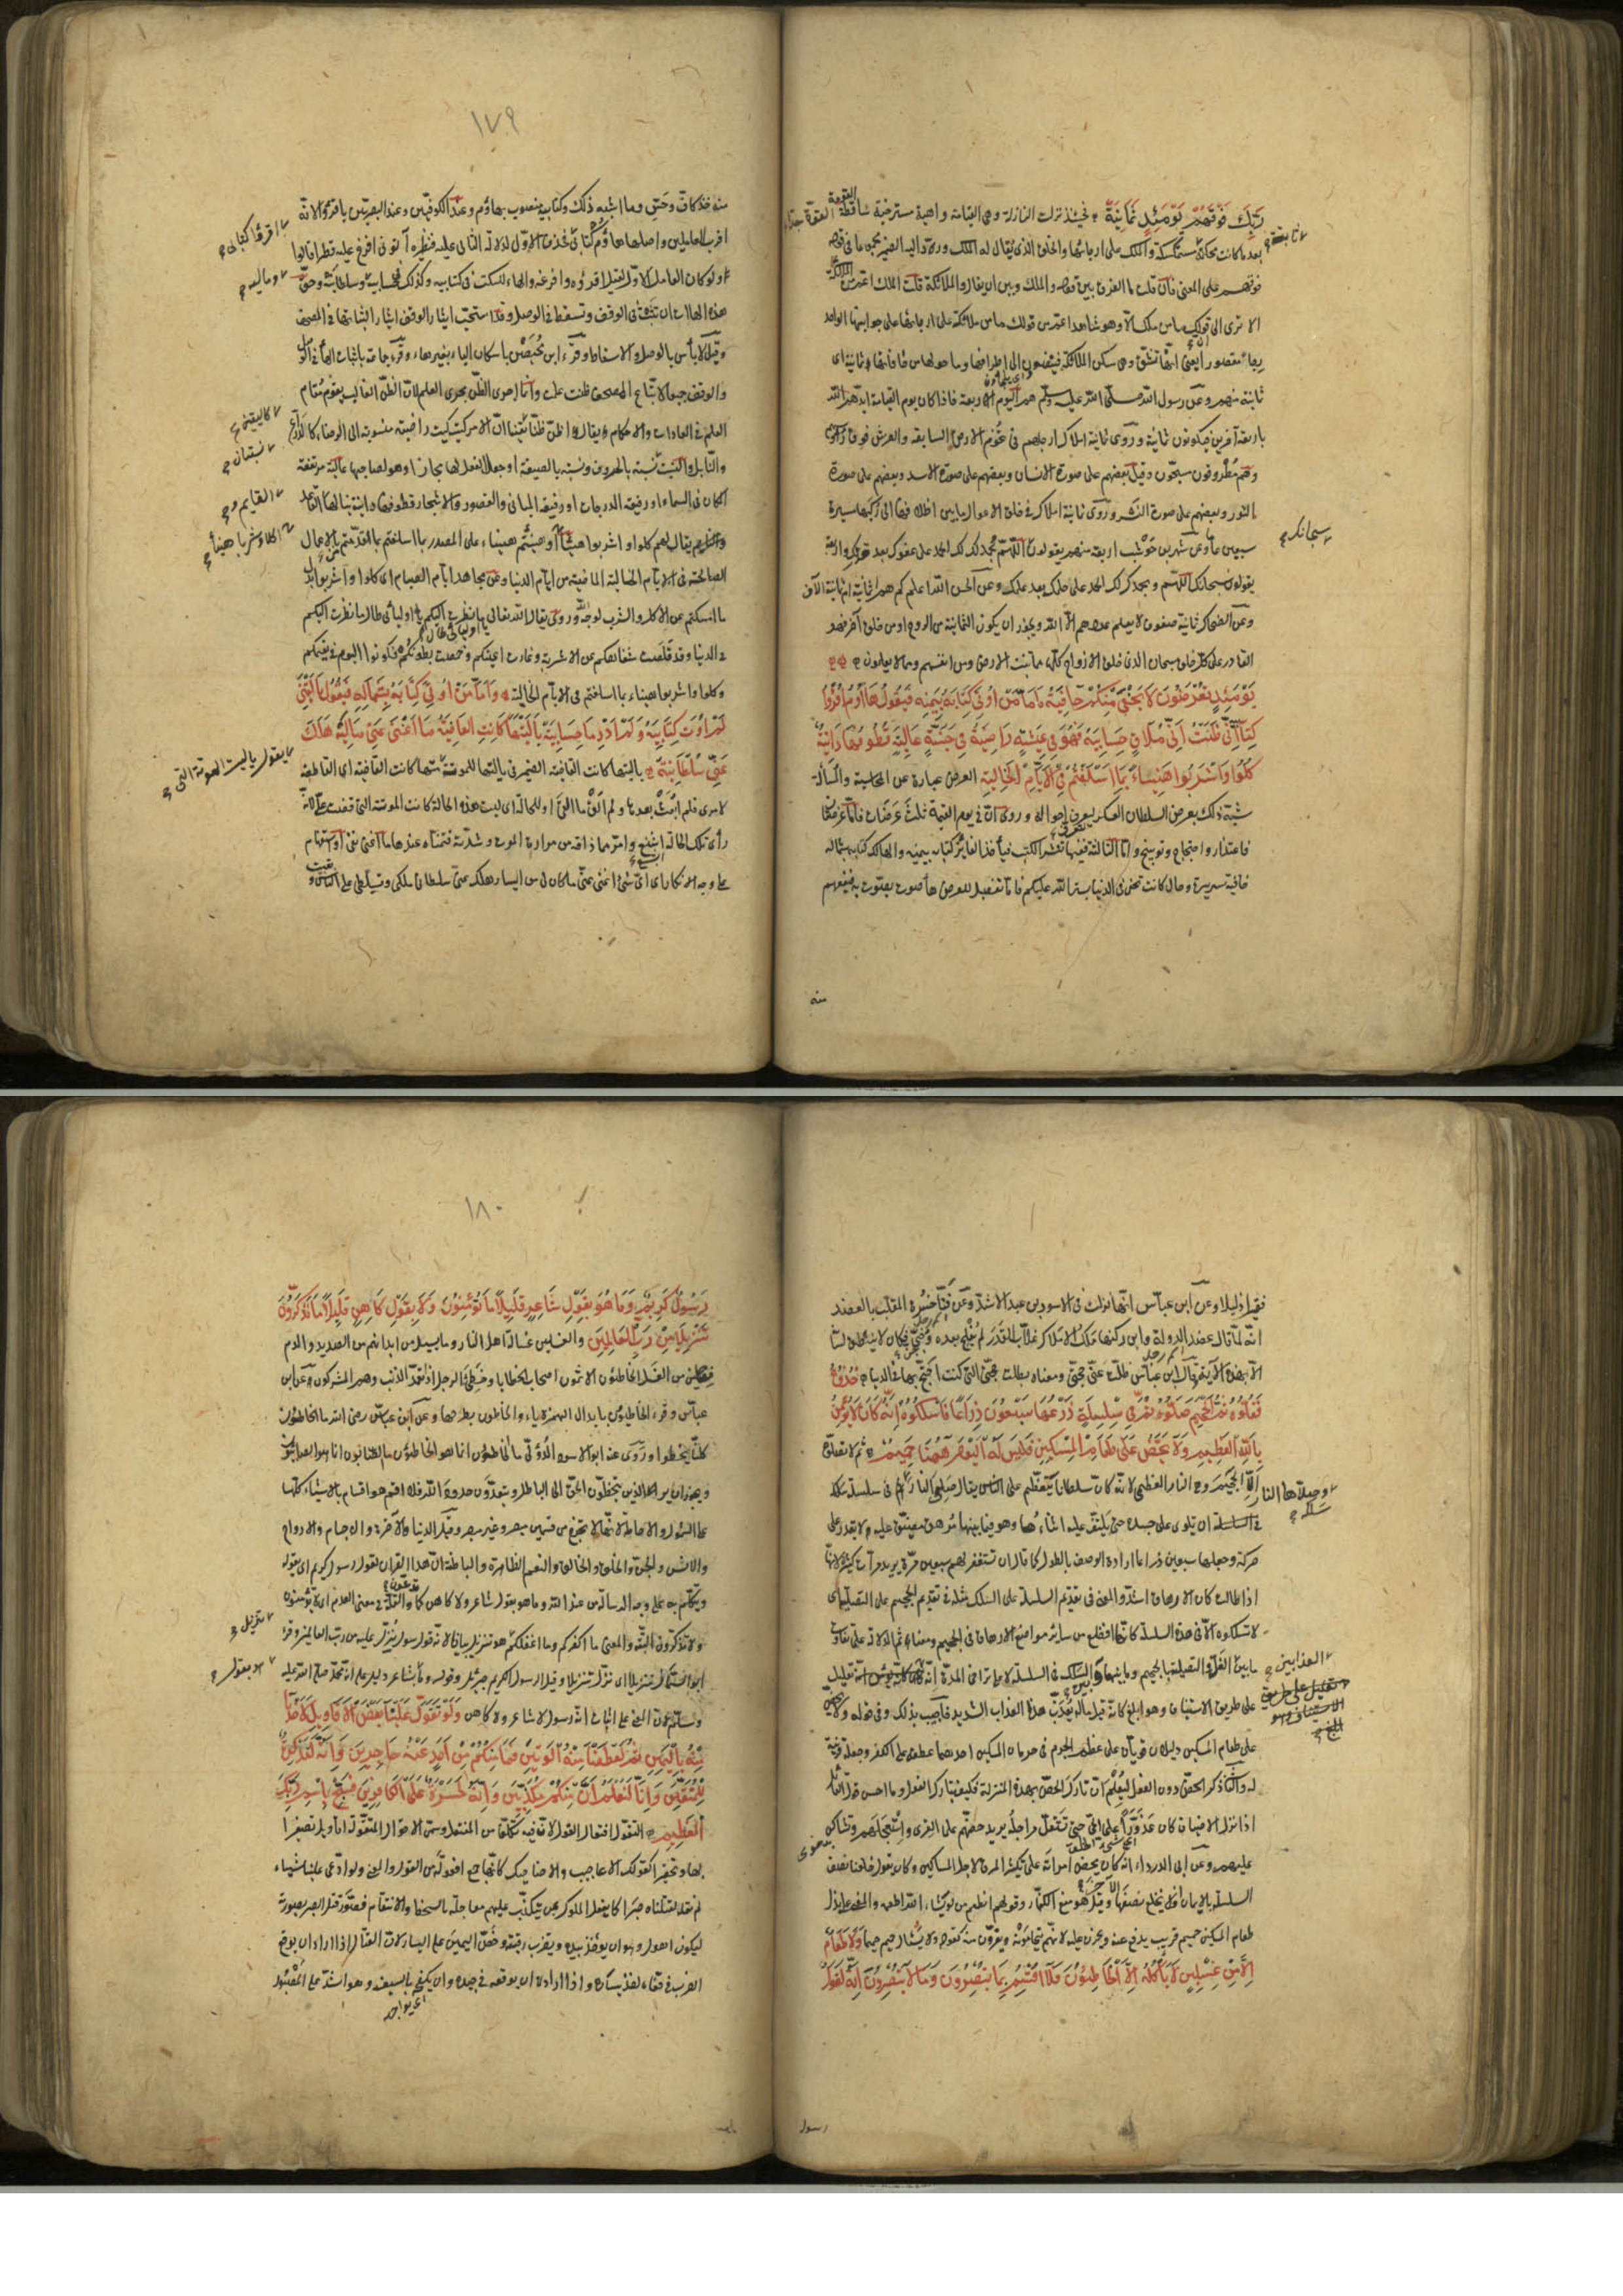 رَبِّكَ فَوْقَهُمْ يَوْمَئِذٍ ثَمَانِيَةٌ فحينئذ نزلت النازلة وهي القيامة واهية مسترخية ساقطة القوة جدا
بعد ما كانت محكمة مستمسكة والملك على ارجائها والخلق الذي يقال له الملك وردّ اليه الضمير مجموعا في قوله
فوقهم على المعنى فان قلت ما الفرق بين قوله والملك وبين ان يقال والملائكة قلت الملك اعمّ من الملائكة
الا ترى الى قولك ما من ملك الا وهو شاهد اعمّ من قولك ما من ملائكة على ارجائها على جوانبها الواحد
رجا مقصور يعني انها تنشق وهي سكن الملائكة فينضوون الى اطرافها وما حولها من حافاتها ثمانية اى
ثمانية منهم وعن رسول الله صلى الله عليه وسلم هم اليوم اربعة فاذا كان يوم القيامة ايدهم الله
باربعة آخرين فيكونون ثمانية وروى ثمانية املاك ارجلهم في تخوم الارض السابعة والعرش فوق رؤسهم
وهم مطرقون مسبحون وقيل بعضهم على صورة الانسان وبعضهم على صورة الاسد وبعضهم على صورة
الثور وبعضهم على صورة النسر وروى ثمانية املاك في خلق الاوعال ما بين اظلافها الى ركبها مسيرة
سبعين عاما وعن شهر بن حوشب اربعة منهم يقولون سبحانك اللهم وبحمدك لك الحمد على عفوك بعد قدرتك واربعة
يقولون سبحانك اللهم وبحمدك لك الحمد على حلمك بعد علمك وعن الحسن الله اعلم كم هم اثمانية ام ثمانية آلاف
وعن الضحاك ثمانية صفوف لا يعلم عددهم الا الله ويجوز ان يكون الثمانية من الروح او من خلق آخر فهو
القادر على كل خلق سبحان الذي خلق الازواج كلها مما تنبت الارض ومن انفسهم ومما لا يعلمون
يَوْمَئِذٍ تُعْرَضُونَ لَا تَخْفَى مِنْكُمْ خَافِيَةٌ فَأَمَّا مَنْ أُوتِيَ كِتَابَهُ بِيَمِينِهِ فَيَقُولُ هَاؤُمُ اقْرَءُوا
كِتَابِيَهْ إِنِّي ظَنَنْتُ أَنِّي مُلَاقٍ حِسَابِيَهْ فَهُوَ فِي عِيشَةٍ رَاضِيَةٍ فِي جَنَّةٍ عَالِيَةٍ قُطُوفُهَا دَانِيَةٌ
كُلُوا وَاشْرَبُوا هَنِيئًا بِمَا أَسْلَفْتُمْ فِي الْأَيَّامِ الْخَالِيَةِ العرض عبارة عن المحاسبة والمسألة
شبه ذلك بعرض السلطان العسكر ليعرف احواله وروى ان في يوم القيمة ثلث عرضات فاما عرضتان
فاعتذار واحتجاج وتوبيخ واما الثالثة ففيها تنشر الكتب فيأخذ الفائز كتابه بيمينه والهالك كتابه بشماله
خافية سريرة وحال كانت تخفى في الدنيا بستر الله عليكم هاء صوت يصوّت به فيفهم
منه
١٧٩
منه خذ كافّ وحس وما اشبه ذلك وكتابيه منصوب بهاؤم عند الكوفيين وعند البصريين باقرؤا لانه
اقرب العاملين واصله هاؤم كتابي اقرؤا كتابي فحذف الاول لدلالة الثاني عليه ونظيره آتوني افرغ عليه قطرا قالوا
ولو كان العامل الاول لقيل اقرؤه وافرغه والهاء للسكت في كتابيه وكذلك في حسابيه وماليه وسلطانيه وحق
هذه الهاآت ان تثبت في الوقف وتسقط في الوصل وقد استحب ايثار الوقف ايثارا لثباتها في المصحف
وقيل لا بأس بالوصل والاسقاط وقرء ابن محيصن باسكان الياء بغير هاء وقرء جماعة باثبات الهاء في الوصل
والوقف جميعا لاتباع المصحف ظننت علمت وانما اجرى الظن مجرى العلم لان الظن الغالب يقوم مقام
العلم في العادات والاحكام ويقال اظن ظنا كاليقين ان الامر كيت وكيت راضية منسوبة الى الرضاء كالدارع
والنابل والنسبة نسبتان نسبة بالحروف ونسبة بالصيغة او جعل الفعل لها مجازا وهو لصاحبها عالية مرتفعة
المكان في السماء او رفيعة الدرجات او رفيعة المباني والقصور والاشجار قطوفها دانية ينالها القاعد
والقائم يقال لهم كلوا واشربوا هنيئا اكلا وشربا هنيئا او هنئتم هنيئا على المصدر بما اسلفتم بما قدمتم من الاعمال
الصالحة في الايام الخالية الماضية من ايام الدنيا وعن مجاهد ايام الصيام اى كلوا واشربوا بدل
ما امسكتم عن الاكل والشرب لوجه الله وروى يقول الله تعالى يا اوليائي طالما نظرت اليكم
في الدنيا وقد قلصت شفاهكم عن الاشربة وغارت اعينكم وخمصت بطونكم فكونوا اليوم في نعيمكم
وكلوا واشربوا هنيئا بما اسلفتم في الايام الخالية وَأَمَّا مَنْ أُوتِيَ كِتَابَهُ بِشِمَالِهِ فَيَقُولُ يَا لَيْتَنِي
لَمْ أُوتَ كِتَابِيَهْ وَلَمْ أَدْرِ مَا حِسَابِيَهْ يَا لَيْتَهَا كَانَتِ الْقَاضِيَةَ مَا أَغْنَى عَنِّي مَالِيَهْ هَلَكَ
عَنِّي سُلْطَانِيَهْ يا ليتها كانت القاضية الضمير في يا ليتها للموتة كانت القاضية اى القاطعة
لامرى فلم ابعث بعدها ولم الق ما القى او للحالة اى ليت هذه الحالة كانت الموتة التي قضت علي لانه
رأى تلك الحالة ابشع وامرّ مما ذاقه من مرارة الموت وشدته فتمناه عندها ما اغنى نفى او استفهام
على وجه الانكار اى اى شئ اغنى عني ما كان لي من اليسار هلك عني سلطانيه ملكي وتسلطي على الناس
١٨٠
فقيرا ذليلا وعن ابن عباس انها نزلت في الاسود بن عبد الاشد وعن فنا خسره الملقب بالعضد
انه لما قال عضد الدولة وابن ركنها ملك الاملاك غلاب القدر لم يفلح بعده وجن فكان لا ينطلق لسانه
الا بهذه الآية قال ابن عباس ضلت عني حجتي ومعناه بطلت حجتي التي كنت احتج بها في الدنيا خُذُوهُ
فَغُلُّوهُ ثُمَّ الْجَحِيمَ صَلُّوهُ ثُمَّ فِي سِلْسِلَةٍ ذَرْعُهَا سَبْعُونَ ذِرَاعًا فَاسْلُكُوهُ إِنَّهُ كَانَ لَا يُؤْمِنُ
بِاللَّهِ الْعَظِيمِ وَلَا يَحُضُّ عَلَى طَعَامِ الْمِسْكِينِ فَلَيْسَ لَهُ الْيَوْمَ هَاهُنَا حَمِيمٌ ثم لا تصلوه
الا الجحيم وهي النار العظمى لانه كان سلطانا يتعظم على الناس يقال صلي النار وصلاها النار سلكه في سلسلة
في السلسلة ان تلوى على جسده حتى تلتف عليه اثناءها وهو فيما بينها مرهق مضيق عليه لا يقدر على
حركة وجعلها سبعين ذراعا ارادة الوصف بالطول كما قال ان تستغفر لهم سبعين مرة يريد مرات كثيرة لانها
اذا طالت كان الارهاق اشد والمعنى في تقديم السلسلة على السلك مثله في تقديم الجحيم على التصلية اى
لا تسلكوه الا في هذه السلسلة كانها افظع من سائر مواضع الارهاق في الجحيم ومعنى ثم الدلالة على تفاوت
ما بين الغل والتصلية بالجحيم وما بينها وبين السلك في السلسلة لا على تراخى المدة انه تعليل
على طريق الاستئناف وهو ابلغ كانه قيل ما له يعذب هذا العذاب الشديد فاجيب بذلك وفي قوله ولا يحض
على طعام المسكين دليلان قويان على عظم الجرم في حرمان المسكين احدهما عطفه على الكفر وجعله قرينة
له والثاني ذكر الحض دون الفعل ليعلم ان تارك الحض بهذه المنزلة فكيف بتارك الفعل وما احسن قول القائل
اذا نزل الاضياف كان عذورا على الحى حتى تستقل مراجله يريد حضهم على القرى واستعجلهم وتشاكس
عليهم وعن ابي الدرداء انه كان يحض امرأته على تكثير المرق لاجل المساكين وكان يقول خلعنا نصف
السلسلة بالايمان افلا نخلع نصفها الآخر وقيل هو منع الكفار وقولهم انطعم من لو يشاء الله اطعمه والمعنى على بذل
طعام المسكين حميم قريب يدفع عنه ويحزن عليه لانهم يتحامونه ويفرون منه كقوله ولا يسأل حميم حميما وَلَا طَعَامٌ
إِلَّا مِنْ غِسْلِينٍ لَا يَأْكُلُهُ إِلَّا الْخَاطِئُونَ فَلَا أُقْسِمُ بِمَا تُبْصِرُونَ وَمَا لَا تُبْصِرُونَ إِنَّهُ لَقَوْلُ
رسول
رَسُولٍ كَرِيمٍ وَمَا هُوَ بِقَوْلِ شَاعِرٍ قَلِيلًا مَا تُؤْمِنُونَ وَلَا بِقَوْلِ كَاهِنٍ قَلِيلًا مَا تَذَكَّرُونَ
تَنْزِيلٌ مِنْ رَبِّ الْعَالَمِينَ والغسلين غسالة اهل النار وما يسيل من ابدانهم من الصديد والدم
فعلين من الغسل الخاطئون الآثمون اصحاب الخطايا وخطئ الرجل اذا تعمد الذنب وهم المشركون وعن ابن
عباس وقرء الخاطيون بابدال الهمزة ياء والخاطون بطرحها وعن ابن عباس رضى الله ما الخاطون
كلنا نخطوا وروى عنه ابو الاسود الدؤلي ما الخاطون انما هو الخاطئون ما الصابون انما هو الصابئون
ويجوز ان يراد الذين يتخطون الحق الى الباطل ويتعدون حدود الله فلا اقسم هو اقسام بالاشياء كلها
على الشمول والاحاطة لانها لا تخرج من قسمين مبصر وغير مبصر وقيل الدنيا والآخرة والاجسام والارواح
والانس والجن والخلق والخالق والنعم الظاهرة والباطنة ان هذا القرآن لقول رسول كريم اى يقوله
ويتكلم به على وجه الرسالة من عند الله وما هو بقول شاعر ولا كاهن كما تدعون والقلة في معنى العدم اى لا تؤمنون
ولا تذكرون البتة والمعنى ما اكفركم وما اغفلكم هو تنزيل بيانا لانه قول رسول نزل عليه من رب العالمين وقرء
ابو السمال تنزيلا اى نزل تنزيلا وقيل الرسول الكريم جبرئيل وقوله وما بقول شاعر دليل على انه محمد صلى الله عليه
وسلم لان المعنى على اثبات انه رسول لا شاعر ولا كاهن وَلَوْ تَقَوَّلَ عَلَيْنَا بَعْضَ الْأَقَاوِيلِ لَأَخَذْنَا
مِنْهُ بِالْيَمِينِ ثُمَّ لَقَطَعْنَا مِنْهُ الْوَتِينَ فَمَا مِنْكُمْ مِنْ أَحَدٍ عَنْهُ حَاجِزِينَ وَإِنَّهُ لَتَذْكِرَةٌ
لِلْمُتَّقِينَ وَإِنَّا لَنَعْلَمُ أَنَّ مِنْكُمْ مُكَذِّبِينَ وَإِنَّهُ لَحَسْرَةٌ عَلَى الْكَافِرِينَ فَسَبِّحْ بِاسْمِ رَبِّكَ
الْعَظِيمِ التقول افتعال القول لان فيه تكلفا من المفتعل وسمى الاقوال المتقولة اقاويل تصغيرا
بها وتحقيرا كقولك الاعاجيب والاضاحيك كانها جمع افعولة من القول والمعنى ولو ادعى علينا شيئا
لم نقله لقتلناه صبرا كما يفعل الملوك بمن يتكذب عليهم معاجلة بالسخط والانتقام فصور قتل الصبر بصورته
ليكون اهول وهو ان يؤخذ بيده ويضرب رقبته وخص اليمين على اليسار لان القتال اذا اراد ان يوقع
الضرب في قفاه اخذ بيساره واذا اراد ان يوقعه في جيده وان يكفحه بالسيف وهو اشد على المصبور